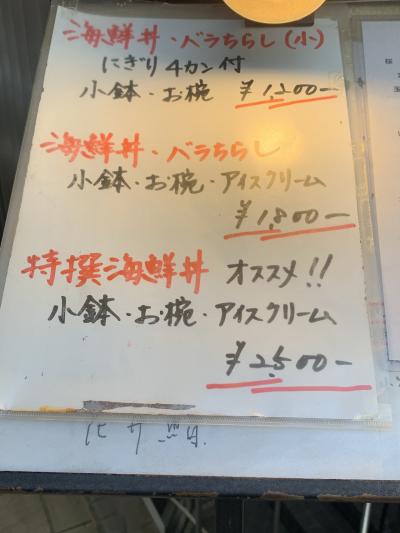 海鮮丼・バラちらし(小)
にぎり4カン付
小鉢・お椀 ¥1,200-
海鮮丼・バラちらし
小鉢・お椀・アイスクリーム
¥1,800-
特撰海鮮丼 オススメ!!
小鉢・お椀・アイスクリーム
¥2,500-